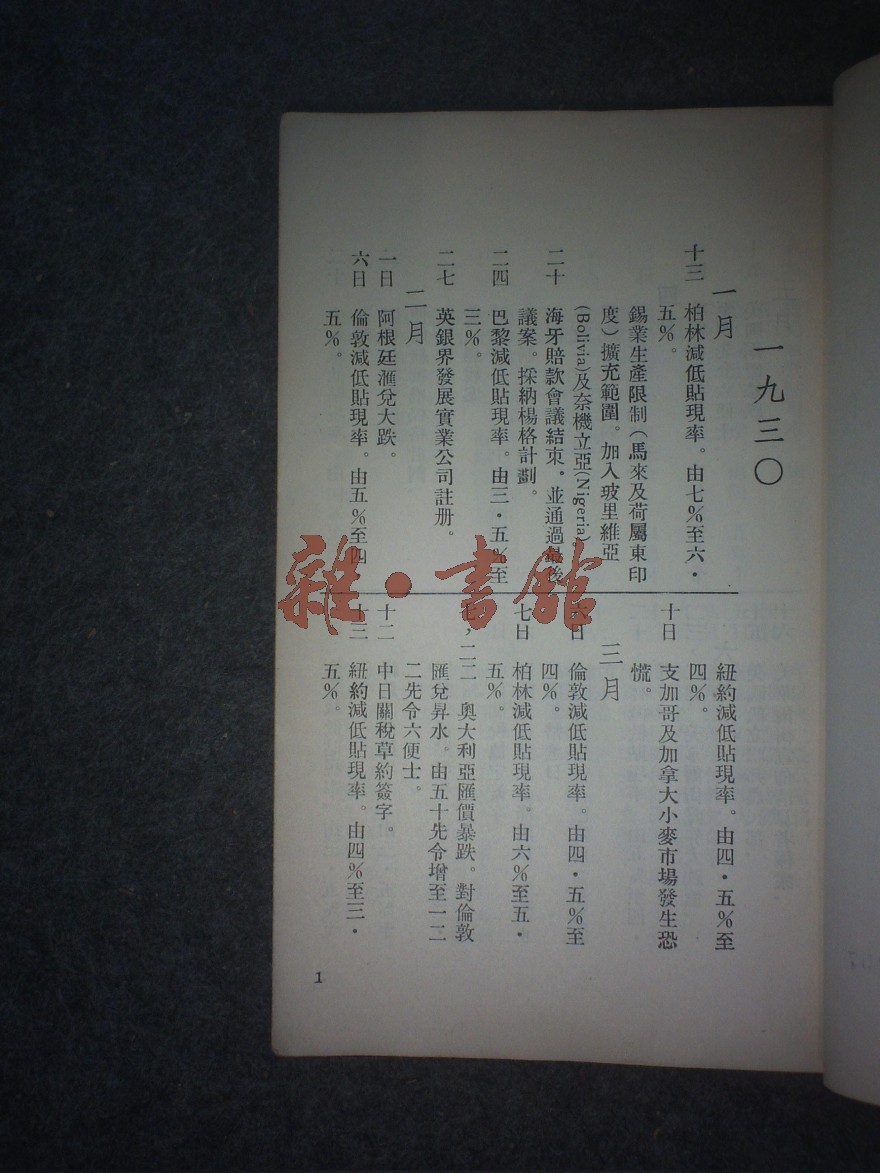 一九三〇
一月
十三 柏林減低貼現率。由七%至六・
五%。
錫業生產限制(馬來及荷屬東印
度)擴充範圍。加入玻里維亞
(Bolivia)及奈機立亞(Nigeria)。
二十 海牙賠款會議結束。並通過最後
議案。採納楊格計劃。
二四 巴黎減低貼現率。由三・五%至
三%。
二七 英銀界發展實業公司註册。
二月
一日 阿根廷滙兌大跌。
六日 倫敦減低貼現率。由五%至四・
五%。
紐約減低貼現率。由四・五%至
四%。
十日 支加哥及加拿大小麥市場發生恐
慌。
三月
六日 倫敦減低貼現率。由四・五%至
四%。
七日 柏林減低貼現率。由六%至五・
五%。
七,二二 奧大利亞匯價暴跌。對倫敦
匯兌昇水。由五十先令增至一二
二先令六便士。
十二 中日關稅草約簽字。
十三 紐約減低貼現率。由四%至三・
五%。
1
雜・書館